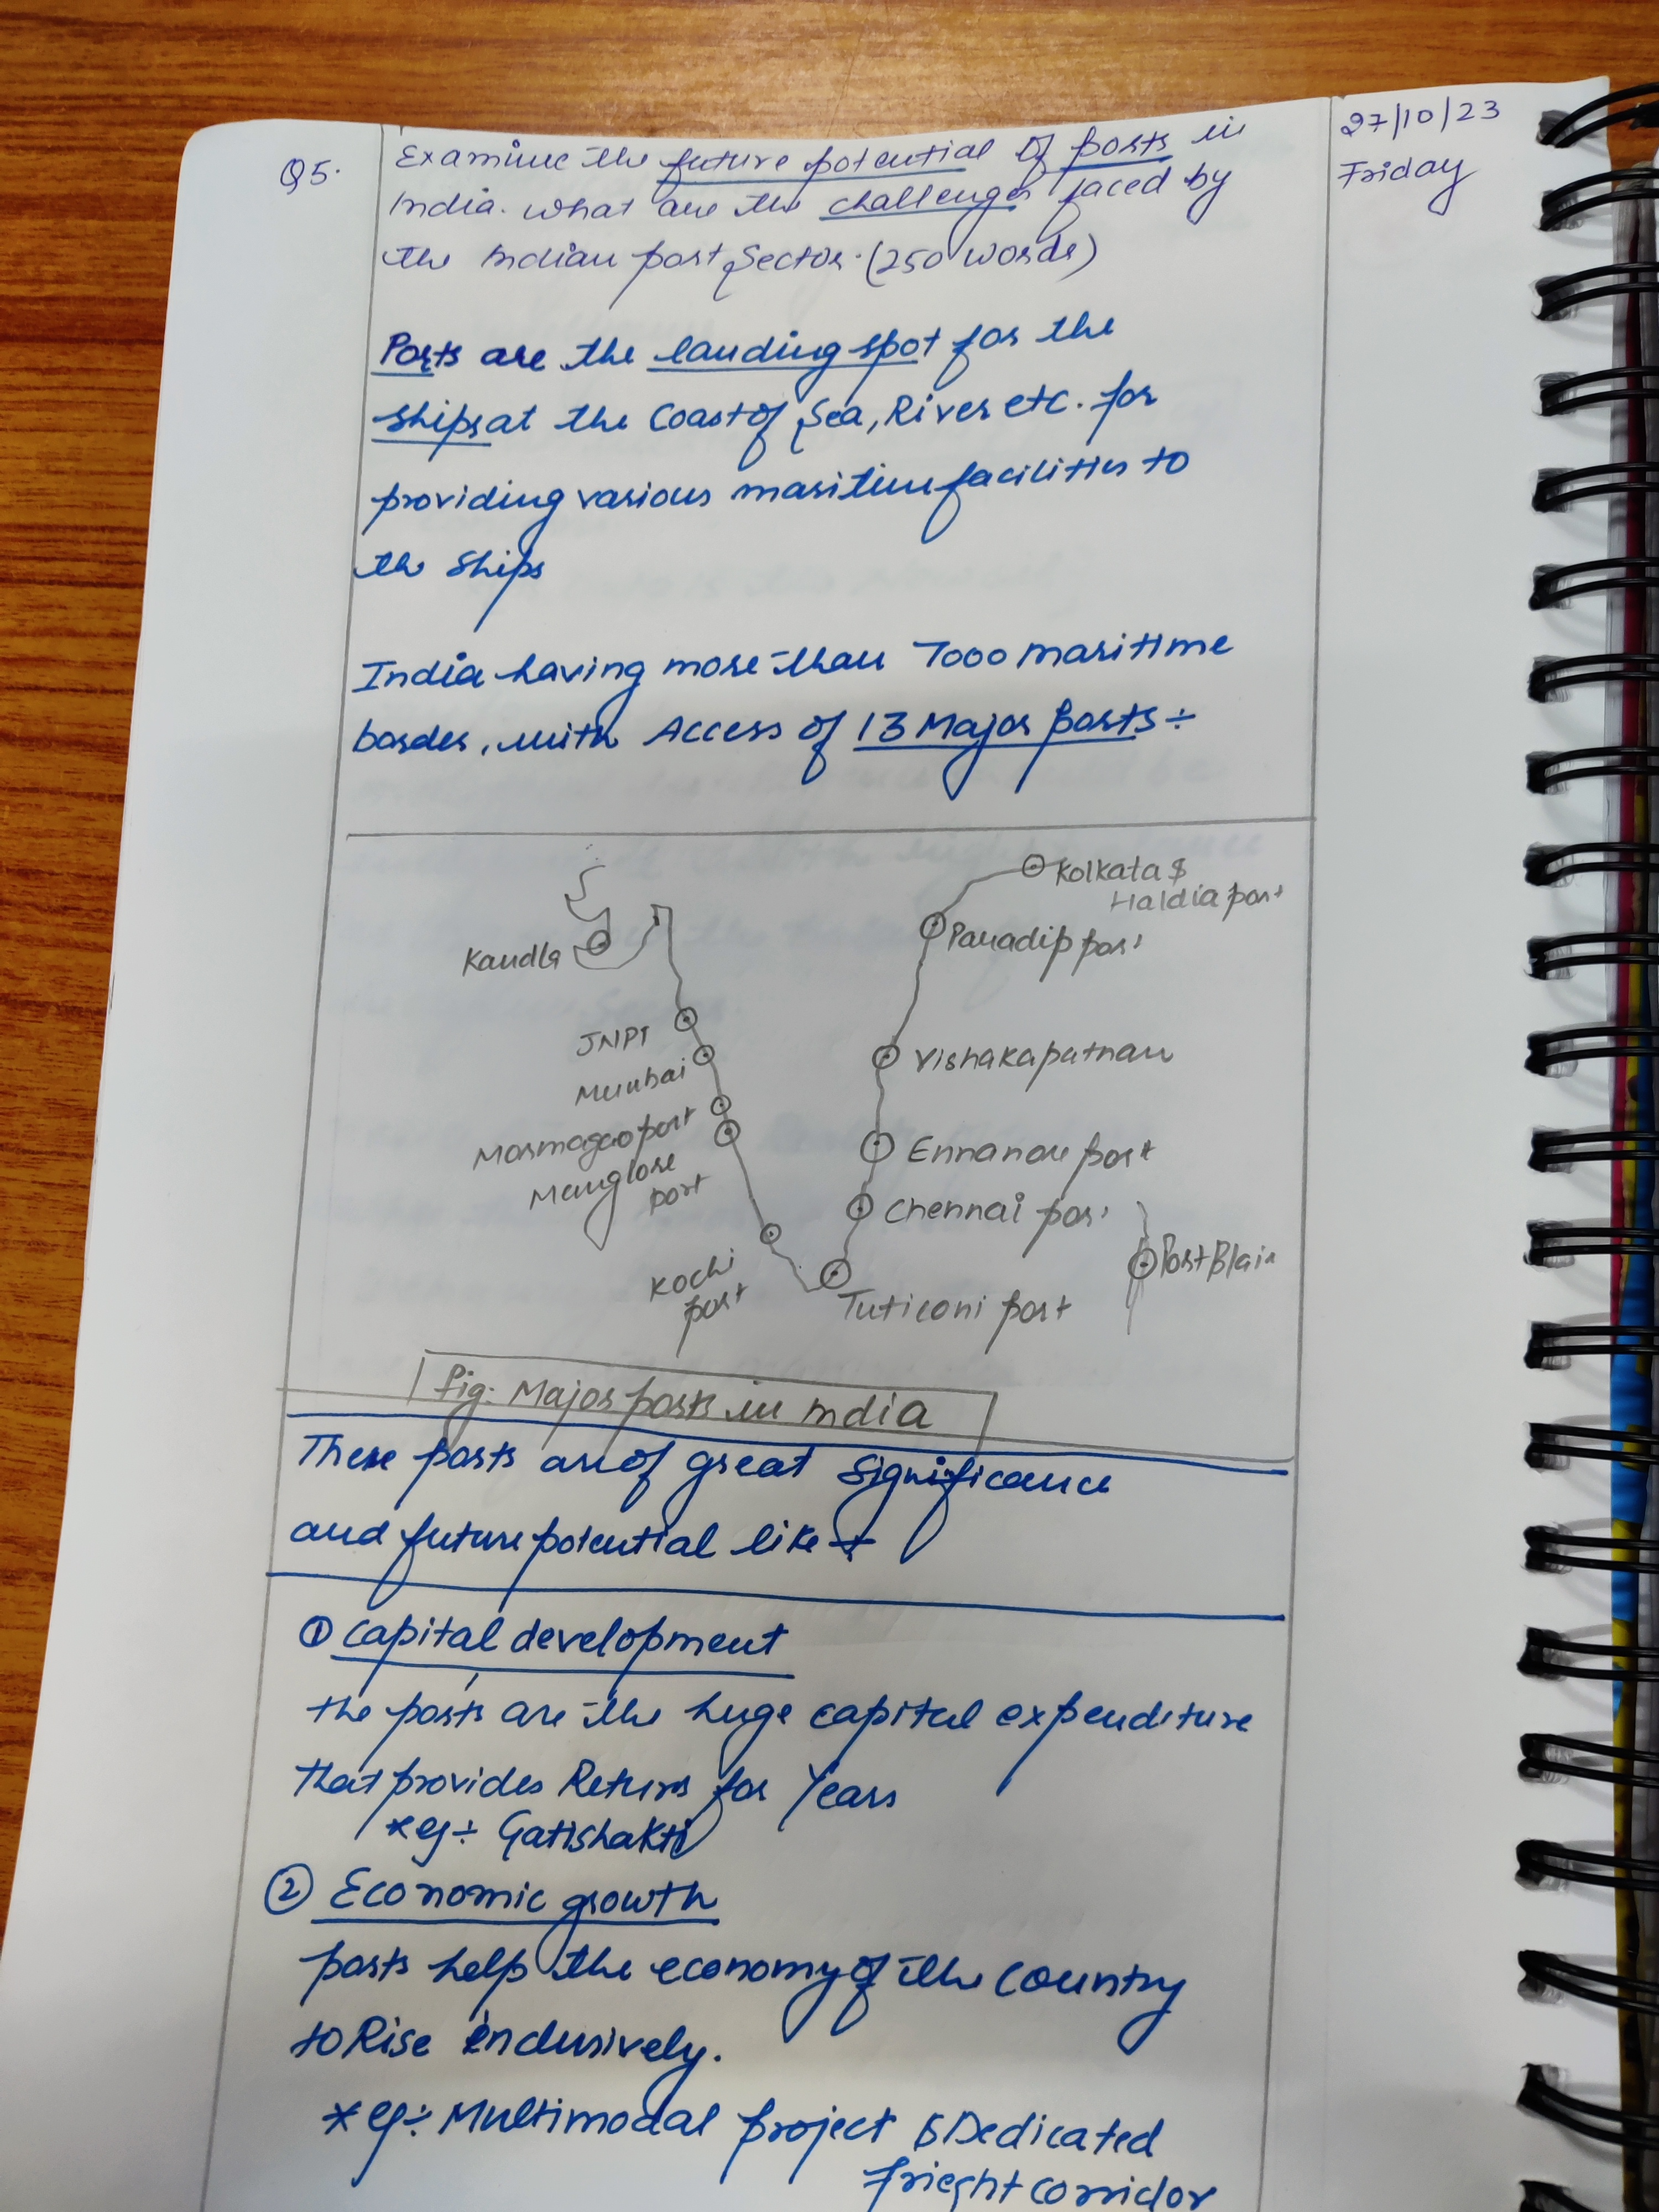 27/10/23
Friday
Q5.
Examine the future potential of ports in
India. what are the challenges faced by
the Indian port Sector. (250 words)
Ports are the landing spot for the
ships at the Coast of Sea, River etc. for
providing various maritime facilities to
the Ships
India having more than 7000 maritime
border, with Access of 13 Major ports ÷
Kolkata &
Haldia port
Paradip port
Kandla
JNPT
Vishakapatnam
Mumbai
Mormagao port
Ennanore port
Manglore
port
Chennai port
Port Blair
Kochi
port
Tuticoni port
fig: Major ports in India
These ports are of great Significance
and future potential like ÷
① Capital development
the ports are the huge capital expenditure
that provides Returns for Years
* eg ÷ Gatishakti
② Economic growth
ports help the economy of the Country
to Rise inclusively.
* eg ÷ Multimodal project & Dedicated
frieght corridor